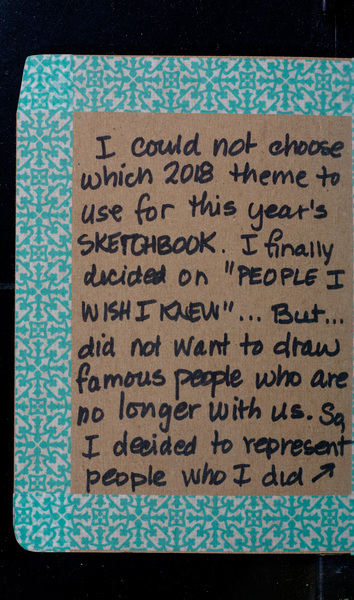 I could not choose
which 2018 theme to
use for this year's
SKETCHBOOK. I finally
decided on "PEOPLE I
WISH I KNEW"... But...
did not want to draw
famous people who are
no longer with us. So,
I decided to represent
people who I did ↗